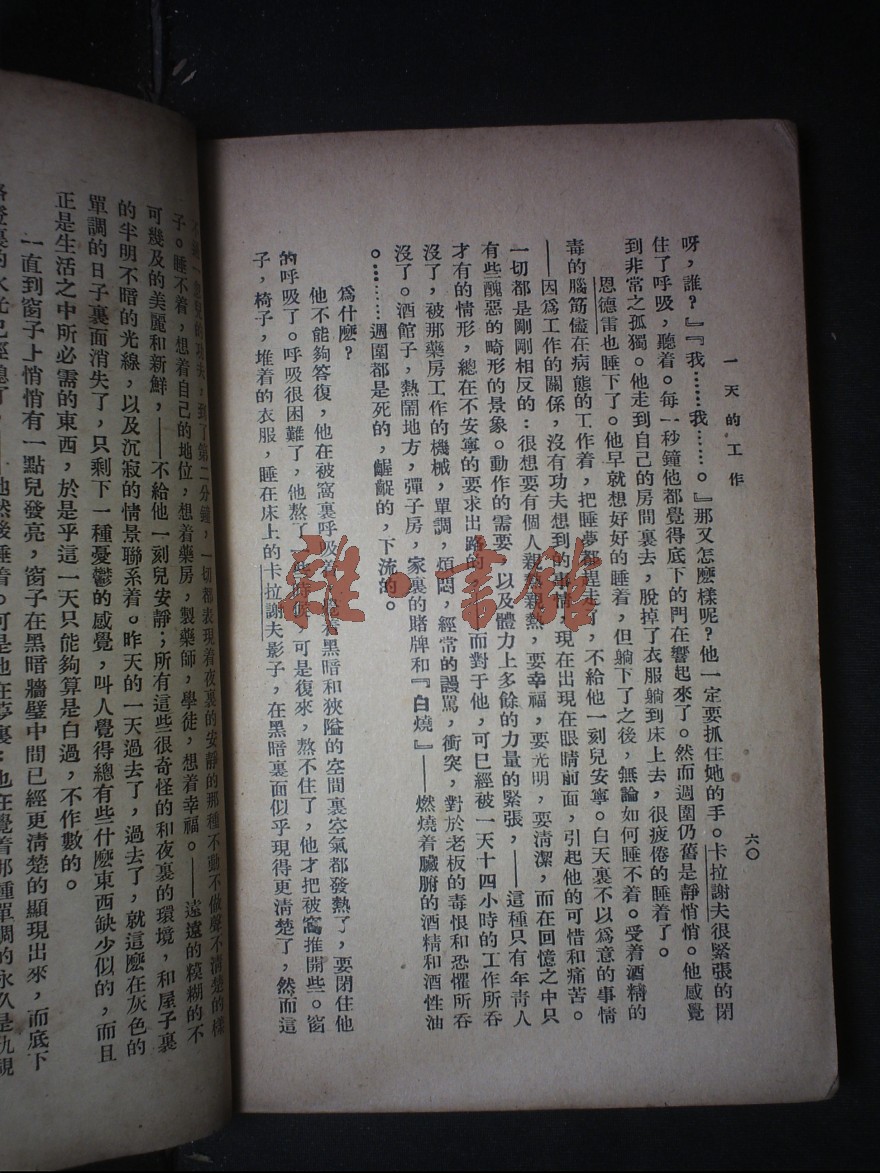 一天的工作
六〇
呀，誰？』『我………我……。』那又怎麽樣呢？他一定要抓住她的手。卡拉謝夫很緊張的閉
住了呼吸，聽着。每一秒鐘他都覺得底下的門在響起來了。然而週圍仍舊是靜悄悄。他感覺
到非常之孤獨。他走到自己的房間裏去，脫掉了衣服躺到床上去，很疲倦的睡着了。
恩德雷也睡下了。他早就想好好的睡着，但躺下了之後，無論如何睡不着。受着酒精的
毒的腦筋儘在病態的工作着，把睡夢都趕走了，不給他一刻兒安寧。白天裏不以爲意的事情
——因爲工作的關係，沒有功夫想到的事情，現在出現在眼睛前面，引起他的可惜和痛苦。
一切都是剛剛相反的：很想要有個人親熱親熱，要幸福，要光明，要清潔，而在回憶之中只
有些醜惡的畸形的景象。動作的需要，以及體力上多餘的力量的緊張，——這種只有年青人
才有的情形，總在不安寧的要求出路的，而對于他，可已經被一天十四小時的工作所吞
沒了，被那藥房工作的機械，單調，煩悶，經常的謾駡，衝突，對於老板的毒恨和恐懼所吞
沒了。酒館子，熱鬧地方，彈子房，家裏的賭牌和『白燒』——燃燒着臟腑的酒精和酒性油
。………週圍都是死的，齷齪的，下流的。
爲什麽？
他不能夠答復，他在被窩裏呼吸着，黑暗和狹隘的空間裏空氣都發熱了，要閉住他
的呼吸了。呼吸很困難了，他熬了一些時候，可是復來，熬不住了，他才把被窩推開些。窗
子，椅子，堆着的衣服，睡在床上的卡拉謝夫影子，在黑暗裏面似乎現得更清楚了，然而這
功夫，到了第二分鐘，一切都表現着夜裏的安靜的那種不動不做聲不清楚的樣
子。睡不着，想着自己的地位，想着藥房，製藥師，學徒，想着幸福。——遠遠的糢糊的不
可幾及的美麗和新鮮，——不給他一刻兒安靜；所有這些很奇怪的和夜裏的環境，和屋子裏
的半明不暗的光線，以及沉寂的情景聯系着。昨天的一天過去了，過去了，就這麽在灰色的
單調的日子裏面消失了，只剩下一種憂鬱的感覺，叫人覺得總有些什麽東西缺少似的，而且
正是生活之中所必需的東西，於是乎這一天只能夠算是白過，不作數的。
一直到窗子上悄悄有一點兒發亮，窗子在黑暗牆壁中間已經更清楚的顯現出來，而底下
他然後睡着。可是他在夢裏：也在覺着那種單調的永久是仇視
雜·書館